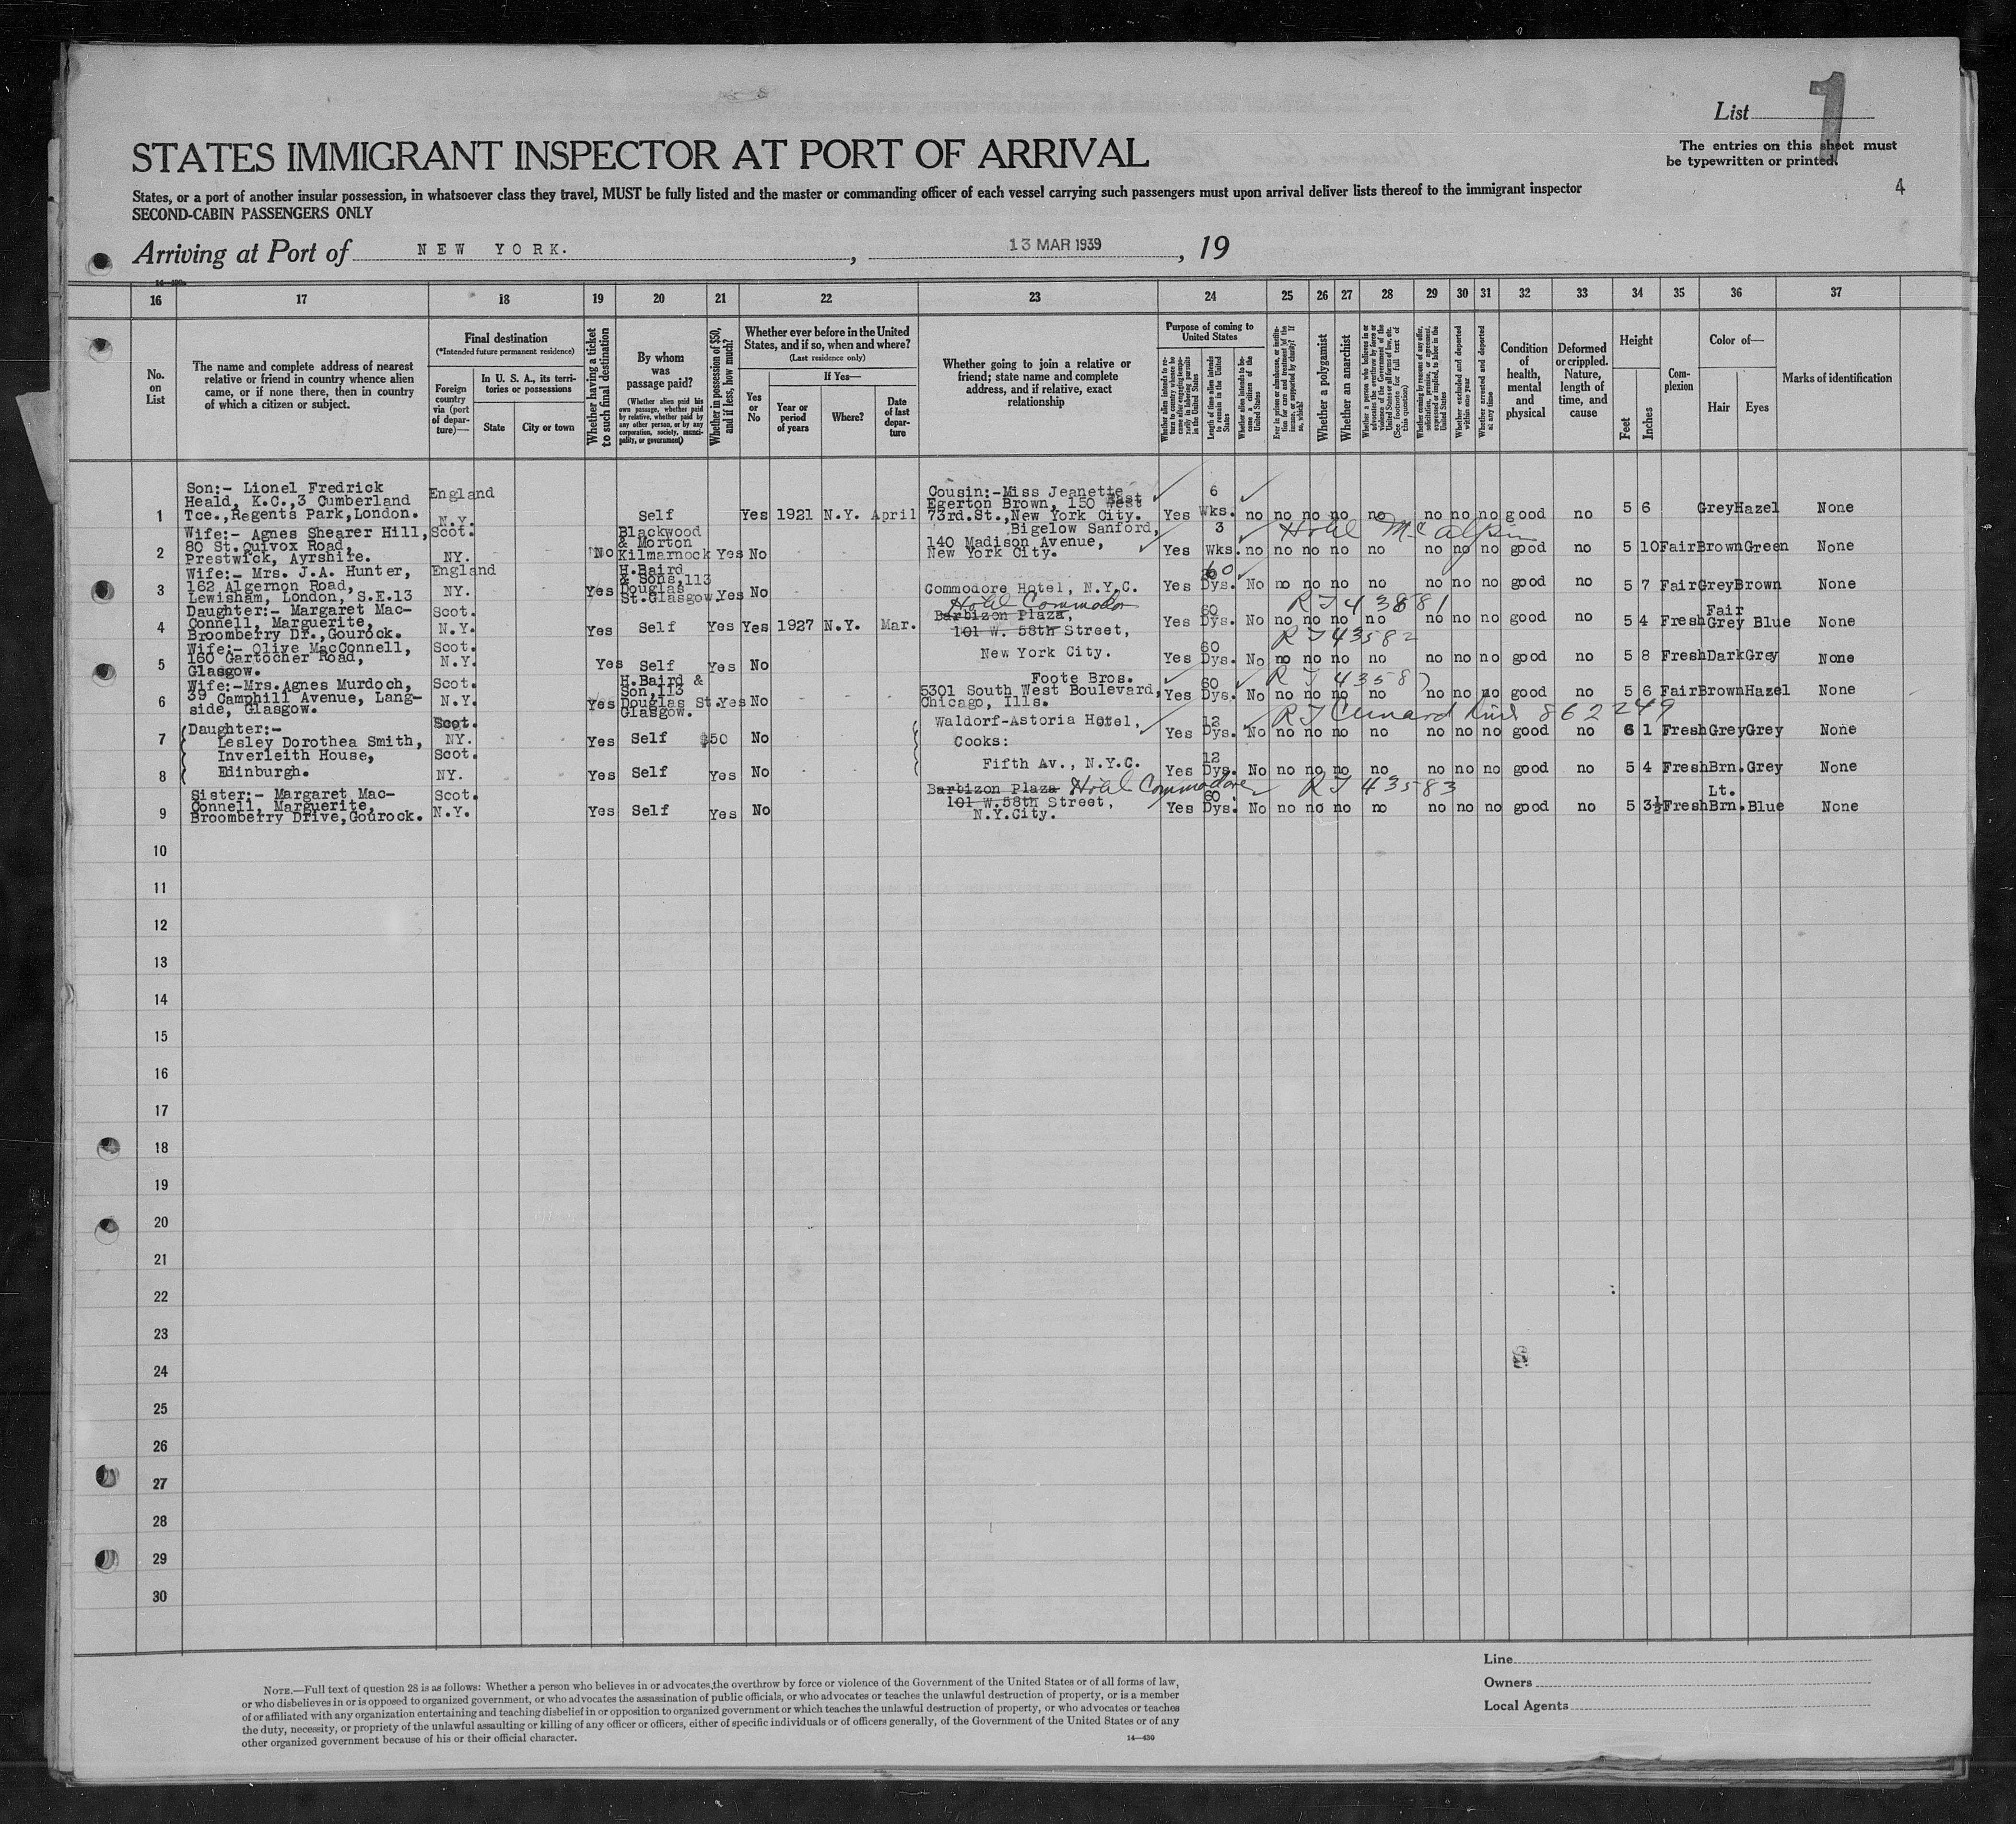 List 1
The entries on this sheet must
be typewritten or printed.
4
STATES IMMIGRANT INSPECTOR AT PORT OF ARRIVAL
States, or a port of another insular possession, in whatsoever class they travel, MUST be fully listed and the master or commanding officer of each vessel carrying such passengers must upon arrival deliver lists thereof to the immigrant inspector
SECOND-CABIN PASSENGERS ONLY
Arriving at Port of NEW YORK. , 13 MAR 1939 , 19
16 17 18 19 20 21 22 23 24 25 26 27 28 29 30 31 32 33 34 35 36 37
No.
on
List
The name and complete address of nearest
relative or friend in country whence alien
came, or if none there, then in country
of which a citizen or subject.
Final destination
(*Intended future permanent residence)
Foreign
country
via (port
of depar-
ture)—
In U. S. A., its terri-
tories or possessions
State
City or town
Whether having a ticket
to such final destination
By whom
was
passage paid?
(Whether alien paid his
own passage, whether paid
by relative, whether paid by
any other person, or by any
corporation, society, munici-
pality, or government)
Whether in possession of $50,
and if less, how much?
Whether ever before in the United
States, and if so, when and where?
(Last residence only)
Yes
or
No
If Yes—
Year or
period
of years
Where?
Date
of last
depar-
ture
Whether going to join a relative or
friend; state name and complete
address, and if relative, exact
relationship
Purpose of coming to
United States
Whether alien intends to re-
turn to country whence he
came after engaging tempo-
rarily in laboring pursuits
in the United States
Length of time alien intends
to remain in the United
States
Whether alien intends to be-
come a citizen of the
United States
Ever in prison or almshouse, or institu-
tion for care and treatment of the
insane, or supported by charity? If
so, which?
Whether a polygamist
Whether an anarchist
Whether a person who believes in or
advocates the overthrow by force or
violence of the Government of the
United States or all forms of law, etc.
(See footnote for full text of
this question)
Whether coming by reasons of any offer,
solicitation, promise, or agreement,
expressed or implied, to labor in the
United States
Whether excluded and deported
within one year
Whether arrested and deported
at any time
Condition
of
health,
mental
and
physical
Deformed
or crippled.
Nature,
length of
time, and
cause
Height
Feet
Inches
Com-
plexion
Color of—
Hair
Eyes
Marks of identification
Son:- Lionel Fredrick
Heald, K.C.,3 Cumberland
Tce.,Regents Park,London.
England
N.Y.
Cousin:-Miss Jeanette
Egerton Brown, 150 West
73rd.St.,New York City.
1 Self Yes 1921 N.Y. April Yes 6 Wks. no no no no no no no no good no 5 6 Grey Hazel None
Wife:- Agnes Shearer Hill,
80 St.Quivox Road,
Prestwick, Ayrshire.
Scot.
NY.
Blackwood
& Morton
Kilmarnock
Bigelow Sanford,
140 Madison Avenue,
New York City.
Hotel McAlpin
2 No Yes No Yes 3 Wks. no no no no no no no no good no 5 10 Fair Brown Green None
Wife:- Mrs. J.A. Hunter,
162 Algernon Road,
Lewisham, London, S.E.13
England
NY.
H.Baird
& Sons,113
Douglas
St.Glasgow.
Commodore Hotel, N.Y.C.
3 Yes Yes No Yes 60 Dys. No no no no no no no no good no 5 7 Fair Grey Brown None
Daughter:- Margaret Mac-
Connell, Marguerite,
Broomberry Dr.,Gourock.
Scot.
N.Y.
Hotel Commodore
Barbizon Plaza,
101 W. 58th Street,
RT 43881
4 Yes Self Yes Yes 1927 N.Y. Mar. Yes 60 Dys. No no no no no no no no good no 5 4 Fresh Fair Grey Blue None
Wife:- Olive MacConnell,
160 Gartocher Road,
Glasgow.
Scot.
N.Y.
New York City.
RT 43582
5 Yes Self Yes No Yes 60 Dys. No no no no no no no no good no 5 8 Fresh Dark Grey None
Wife:-Mrs.Agnes Murdoch,
39 Camphill Avenue, Lang-
side, Glasgow.
Scot.
N.Y.
H.Baird &
Son,113
Douglas St.
Glasgow.
Foote Bros.
5301 South West Boulevard,
Chicago, Ills.
RT 43587
6 Yes Yes No Yes 60 Dys. No no no no no no no no good no 5 6 Fair Brown Hazel None
Daughter:-
Lesley Dorothea Smith,
Inverleith House,
Edinburgh.
Scot.
NY.
Waldorf-Astoria Hotel,
Cooks:
Fifth Av., N.Y.C.
RT Cunard Line 862249
7 Yes Self $50 No Yes 12 Dys. No no no no no no no no good no 6 1 Fresh Grey Grey None
Scot.
NY.
8 Yes Self Yes No Yes 12 Dys. No no no no no no no no good no 5 4 Fresh Brn. Grey None
Sister:- Margaret Mac-
Connell, Marguerite,
Broomberry Drive,Gourock.
Scot.
N.Y.
Barbizon Plaza Hotel Commodore
101 W.58th Street,
N.Y.City.
RT 43583
9 Yes Self Yes No Yes 60 Dys. No no no no no no no no good no 5 3½ Fresh Lt. Brn. Blue None
10
11
12
13
14
15
16
17
18
19
20
21
22
23
24
25
26
27
28
29
30
Line
Owners
Local Agents
NOTE.—Full text of question 28 is as follows: Whether a person who believes in or advocates the overthrow by force or violence of the Government of the United States or of all forms of law,
or who disbelieves in or is opposed to organized government, or who advocates the assassination of public officials, or who advocates or teaches the unlawful destruction of property, or is a member
of or affiliated with any organization entertaining and teaching disbelief in or opposition to organized government or which teaches the unlawful destruction of property, or who advocates or teaches
the duty, necessity, or propriety of the unlawful assaulting or killing of any officer or officers, either of specific individuals or of officers generally, of the Government of the United States or of any
other organized government because of his or their official character.
14—430